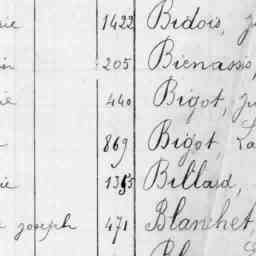 1422 Bidois,
205 Bienassis,
440 Bigot,
869 Bigot,
1365 Billard,
joseph 471 Blanchet,